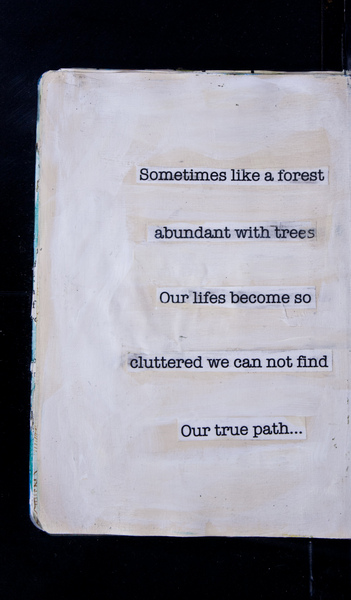 Sometimes like a forest
abundant with trees
Our lifes become so
cluttered we can not find
Our true path...